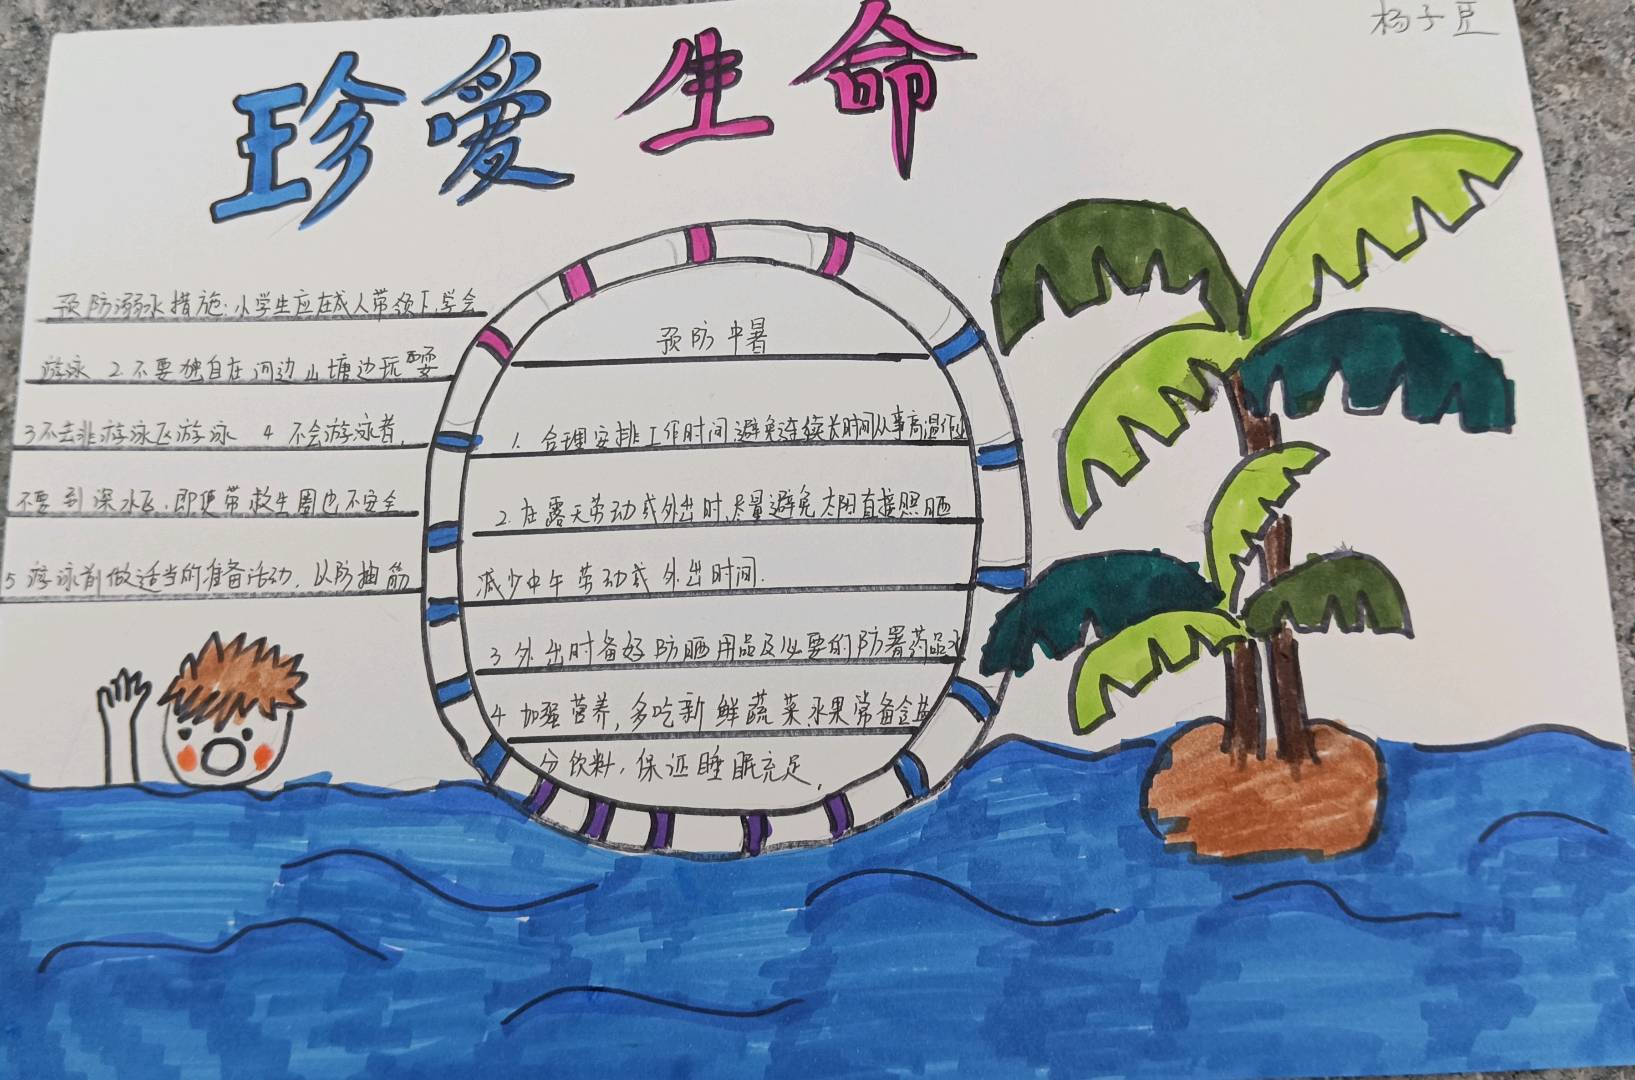 杨子豆
珍爱生命
预防溺水措施:小学生应在成人带领下,学会
游泳 2 不要独自在河边山塘边玩耍
3 不去非游泳区游泳 4 不会游泳者,
不要到深水区,即使带救生圈也不安全
5 游泳前做适当的准备活动,以防抽筋
预防中暑
1. 合理安排工作时间避免连续长时间从事高温作业
2. 在露天劳动或外出时,尽量避免太阳直接照晒
减少中午劳动或外出时间.
3 外出时备好防晒用品及必要的防署药品水
4 加强营养,多吃新鲜蔬菜水果常备含盐
分饮料,保证睡眠充足,